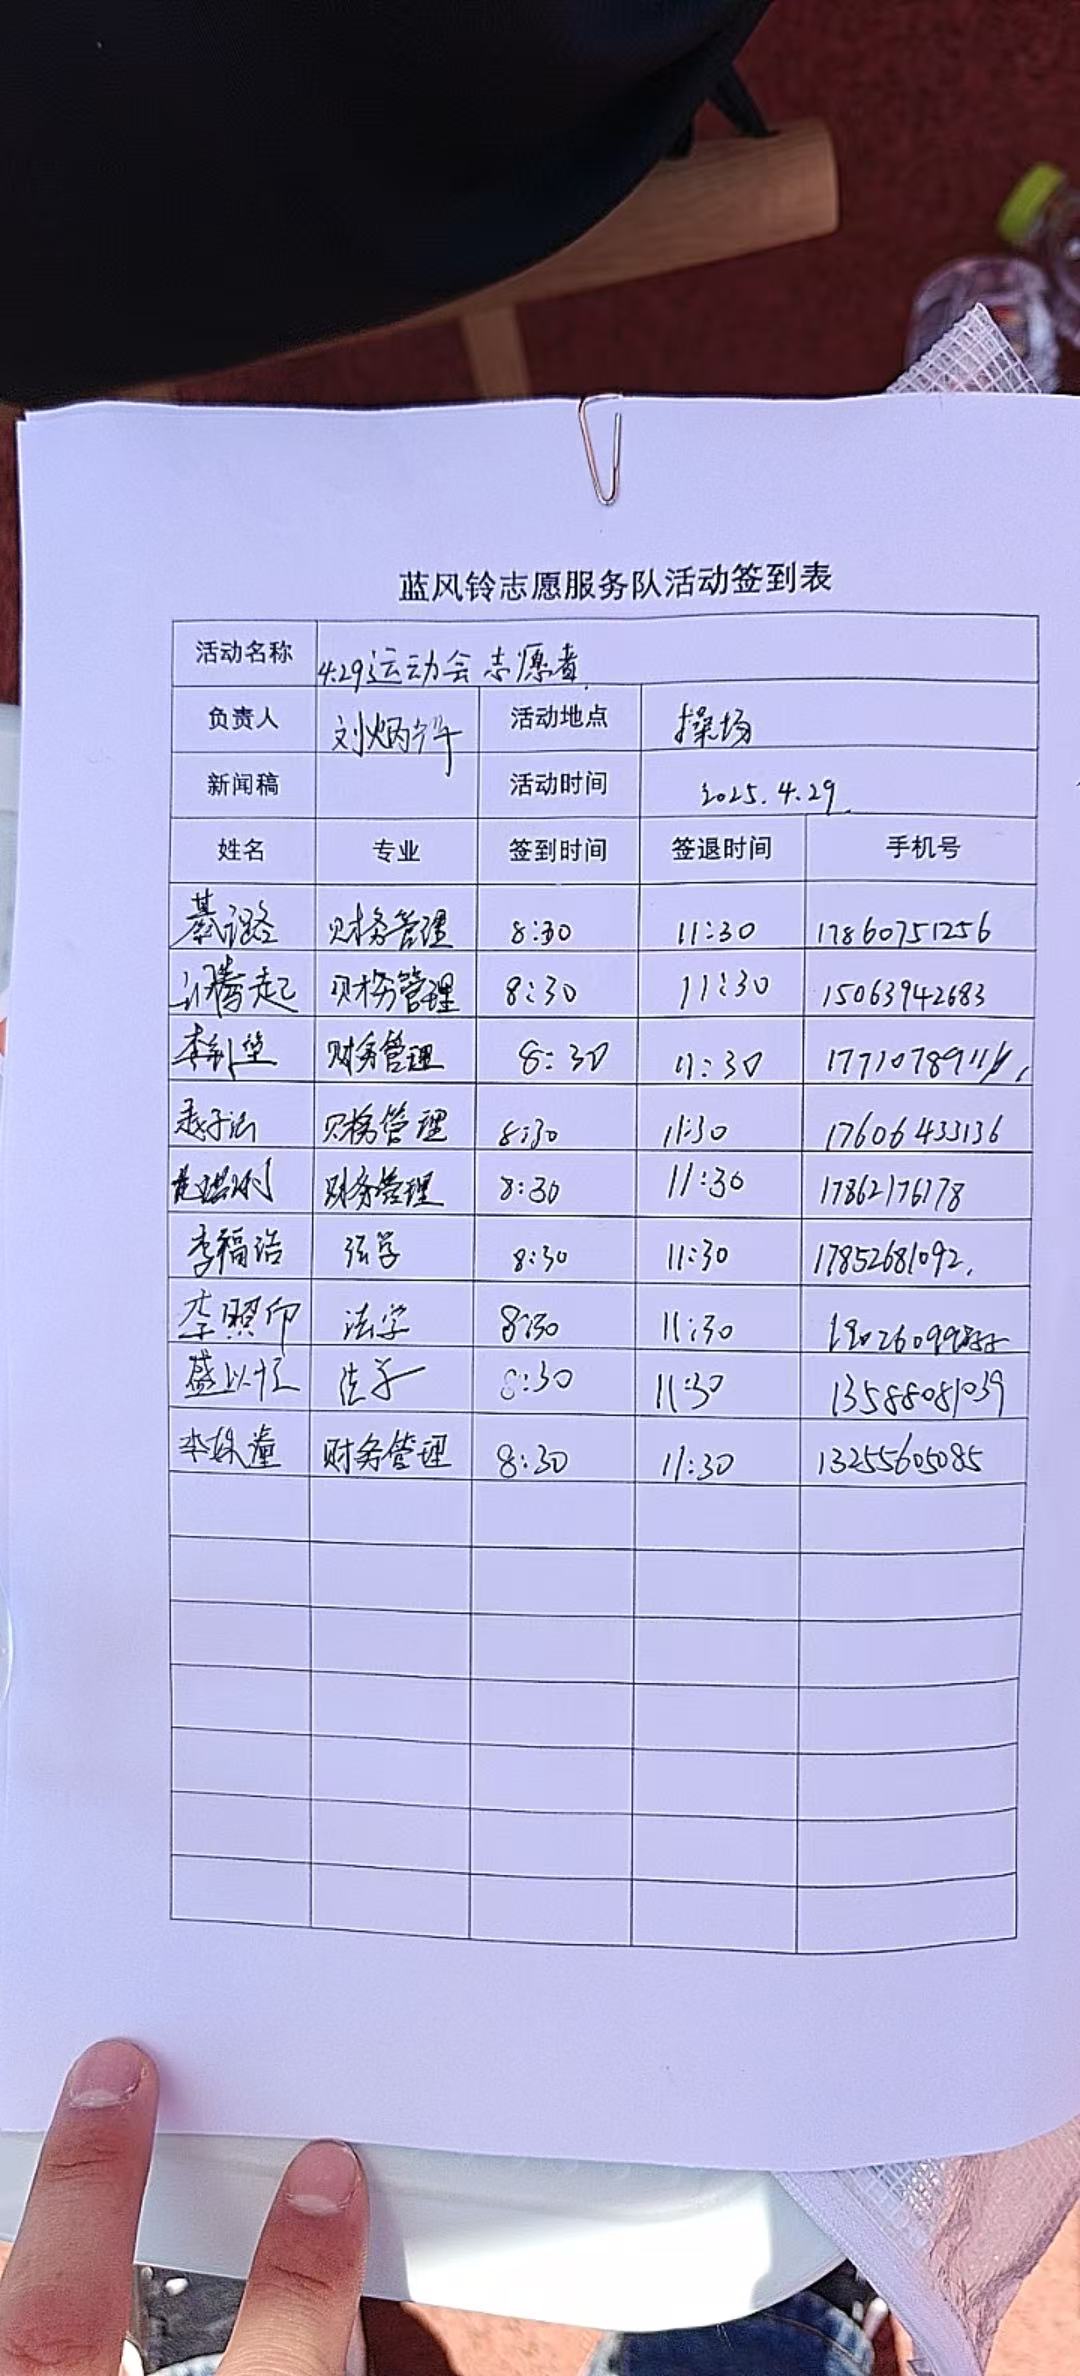 蓝风铃志愿服务队活动签到表
活动名称 4.29运动会志愿者
负责人 刘炳 活动地点 操场
新闻稿 活动时间 2025.4.29
姓名 专业 签到时间 签退时间 手机号
财务管理 8:30 11:30 17860751256
财务管理 8:30 11:30 15063942683
财务管理 8:30 11:30
财务管理 8:30 11:30 17606433136
财务管理 8:30 11:30 17862176178
李福浩 法学 8:30 11:30 17852681092.
李照印 法学 8:30 11:30
法学 8:30 11:30 13588081039
财务管理 8:30 11:30 13255605085